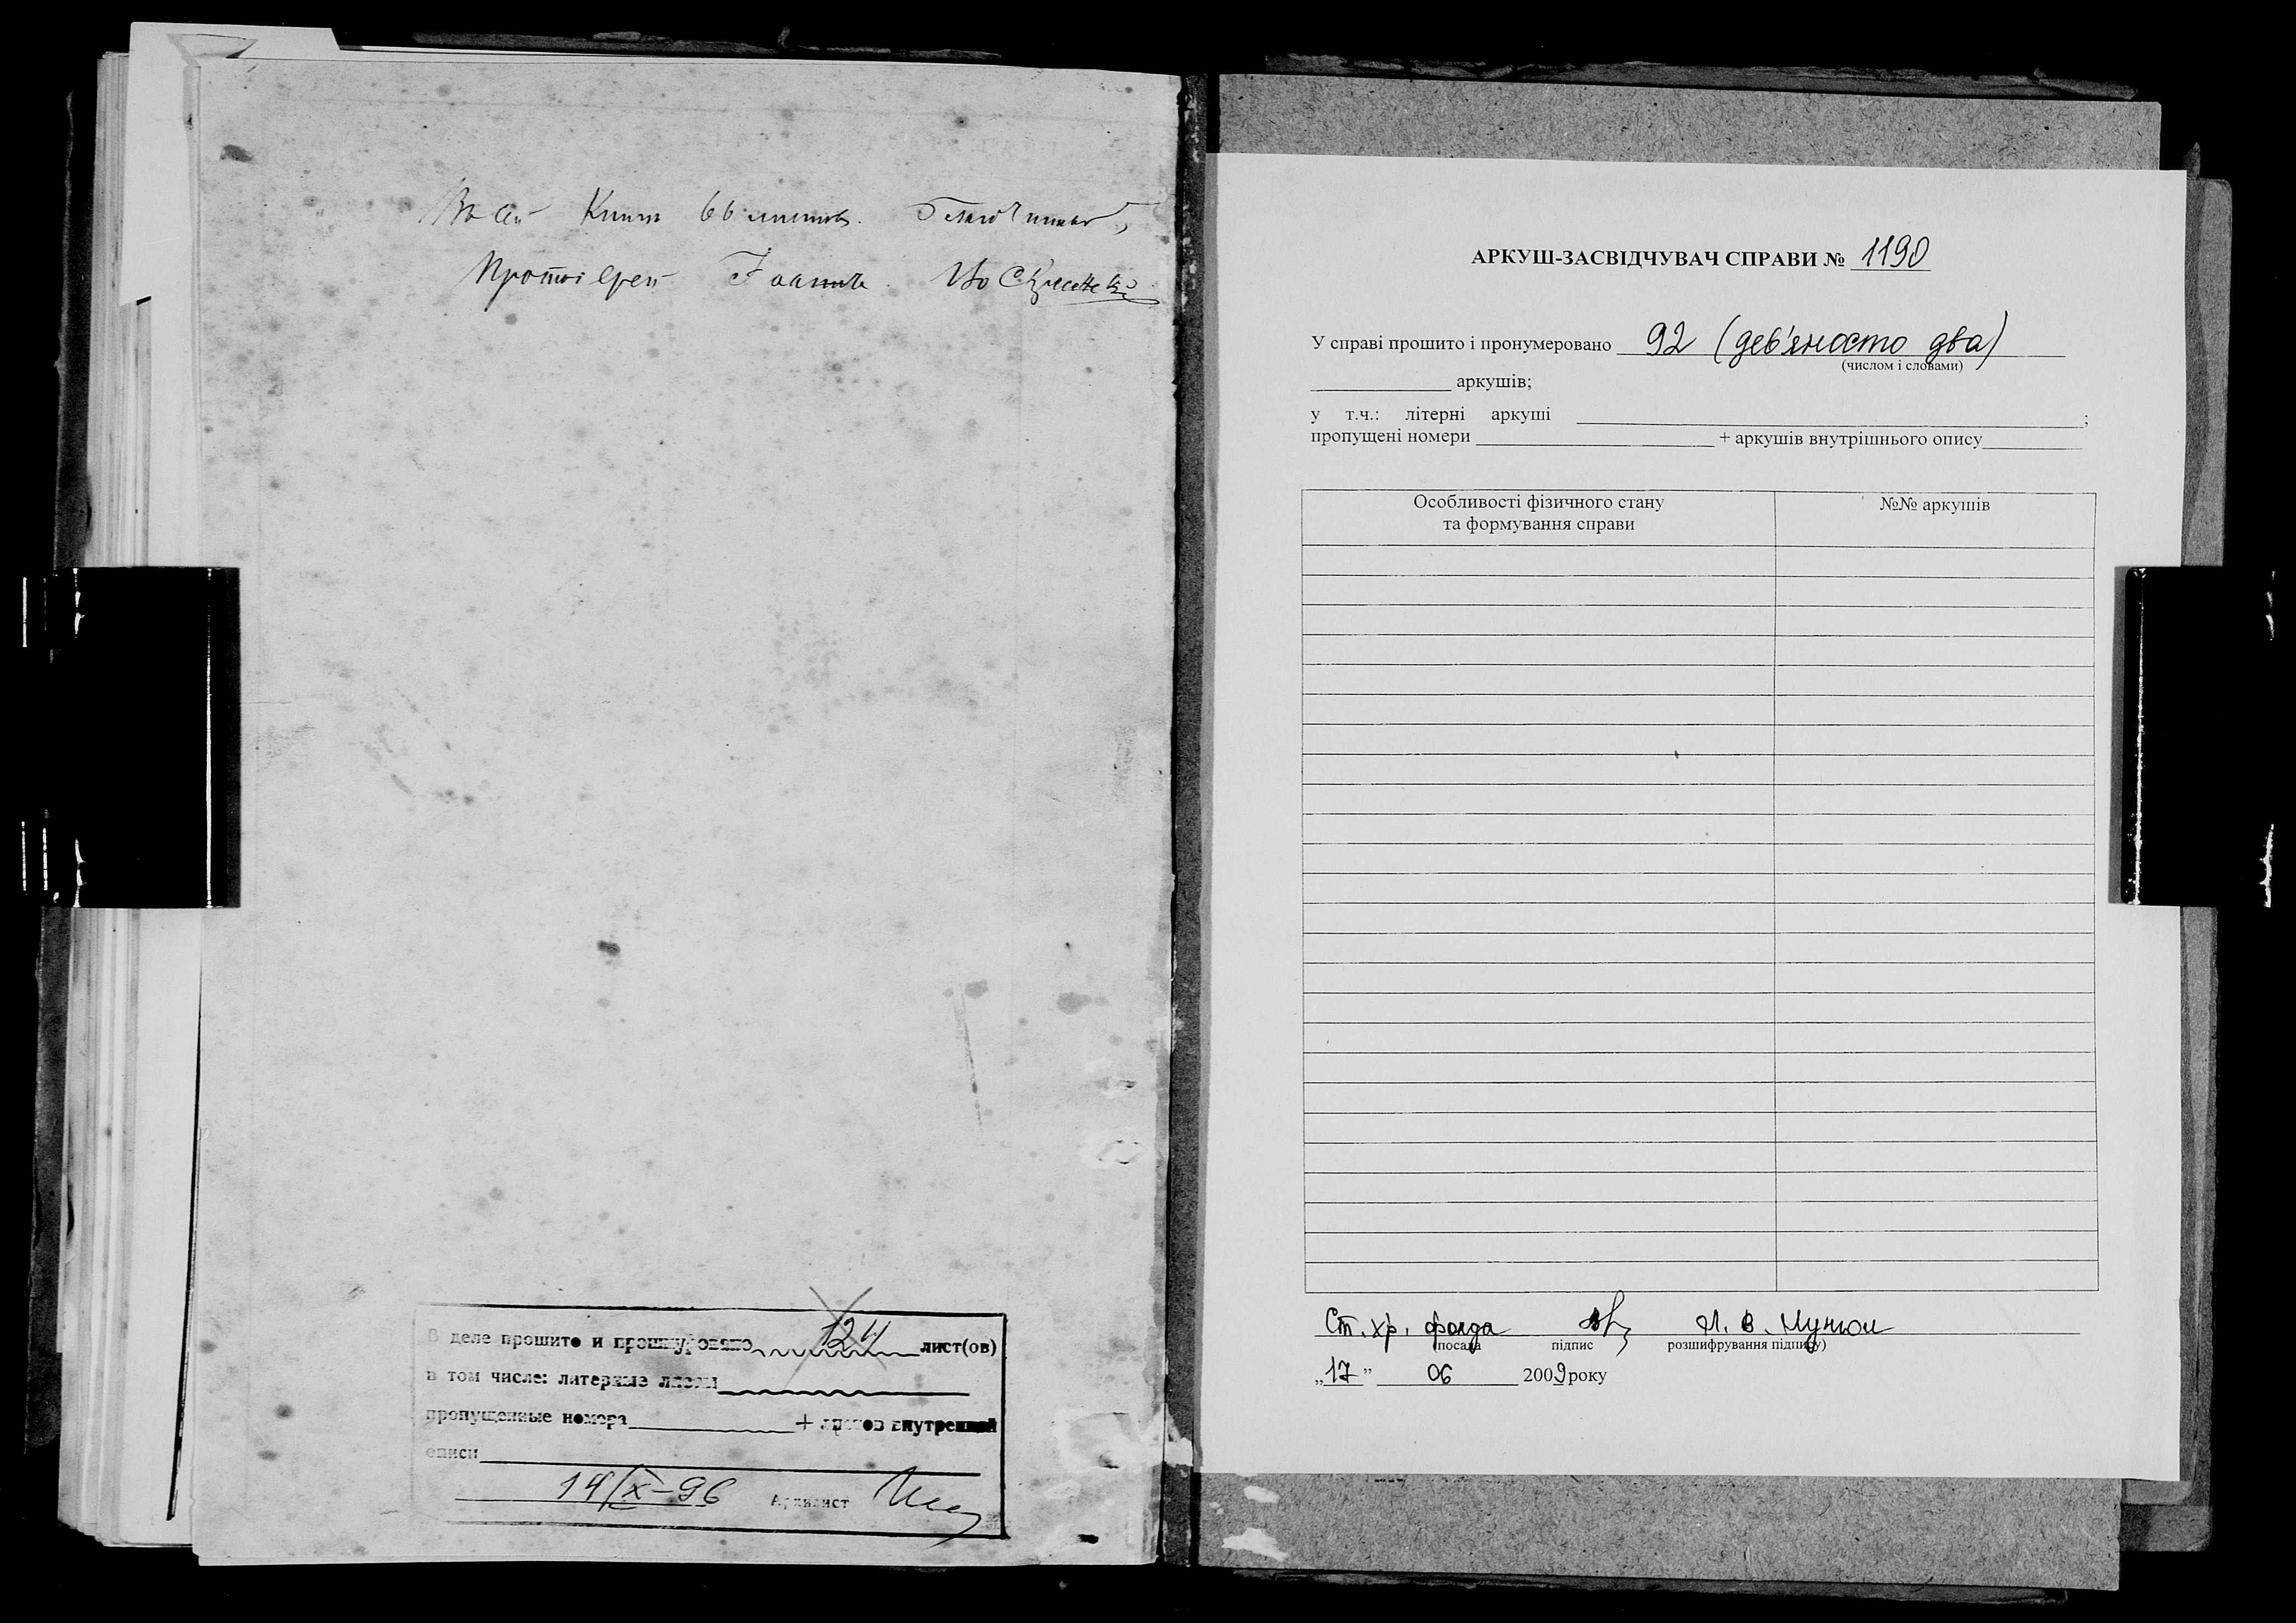 Въ сей Книгѣ 66 листовъ. Благочинный,
Протоіерей Іоаннъ Воскресенскій
В деле прошито и пронумеровано 124 лист(ов)
в том числе: литерные листы
пропущенные номера + листов внутренней
описи
14/IX-96 Архивист
АРКУШ-ЗАСВІДЧУВАЧ СПРАВИ № 1190
У справі прошито і пронумеровано 92 (дев'яносто два)
(числом і словами)
аркушів;
у т.ч.: літерні аркуші ;
пропущені номери + аркушів внутрішнього опису
Особливості фізичного стану №№ аркушів
та формування справи
Ст. хр. фонда Л. В.
посада підпис розшифрування підпису)
„17” 06 2009 року